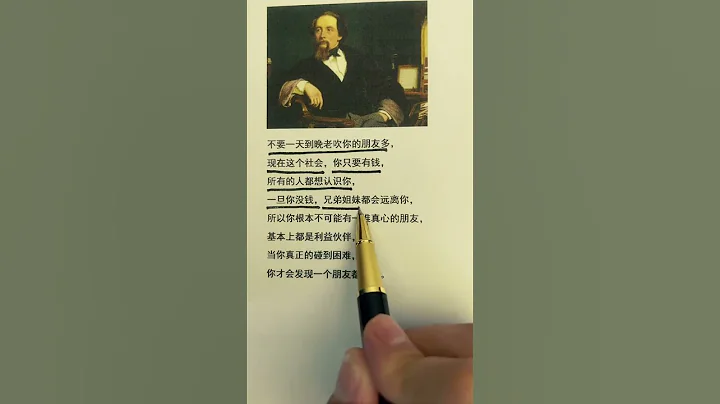 不要一天到晚老吹你的朋友多,
现在这个社会,你只要有钱,
所有的人都想认识你,
一旦你没钱,兄弟姐妹都会远离你,
所以你根本不可能有一 真心的朋友,
基本上都是利益伙伴,
当你真正的碰到困难,
你才会发现一个朋友都